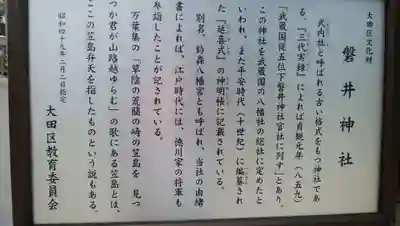 大田区文化財
磐井神社
式内社と呼ばれる古い格式をもつ神社であ
る。『三代実録』によれば貞観元年(八五九)
「武蔵国従五位下磐井神社官社に列す」とあり、
この神社を武蔵国の八幡社の総社に定めたと
いわれ、また平安時代(十世紀)に編纂され
た『延喜式』の神明帳に記載されている。
別名、鈴森八幡宮とも呼ばれ、当社の由緒
書によれば、江戸時代には、徳川家の将軍も
参詣したことが記されている。
万葉集の「草陰の荒藺の崎の笠島を見つ
つか君が山路越ゆらむ」の歌にある笠島とは、
ここの笠島弁天を指したものという説もある。
昭和四十九年二月二日指定
大田区教育委員会